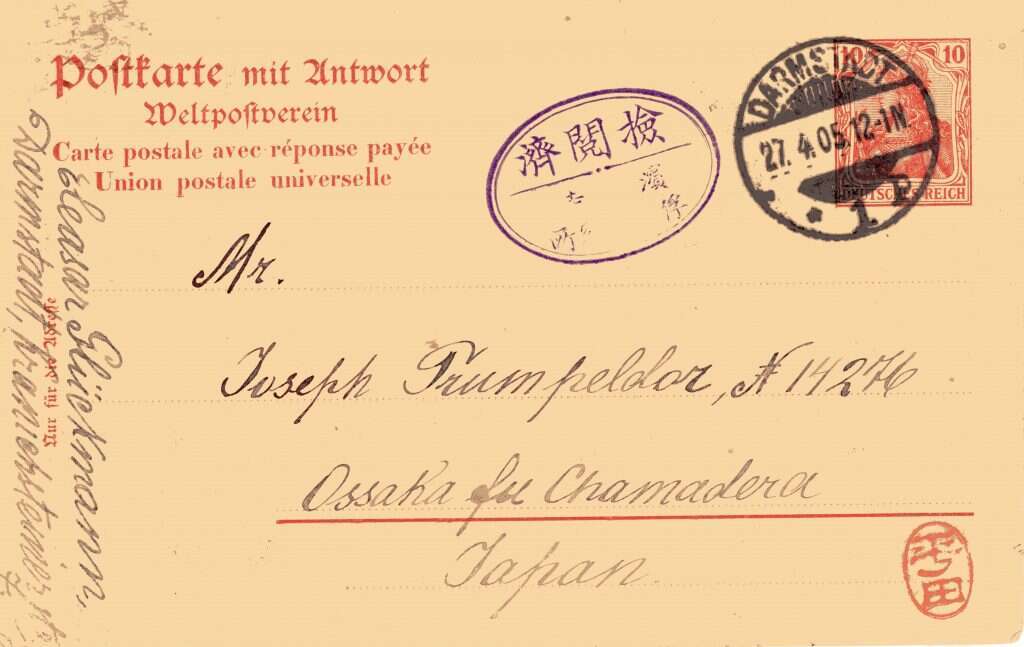 Postkarte mit Antwort
Weltpostverein
Carte postale avec réponse payée
Union postale universelle
濟閱檢
濱
所
DARMSTADT
27. 4. 05. 12-1N.
* 1 P
10 10
DEUTSCHES REICH
Mr.
Joseph Trumpeldor, N 14276
Ossaka fu Chamadera
Japan.
Nur für die Adresse
Eleasar Glückmann,
Darmstadt, Kranichsteiner